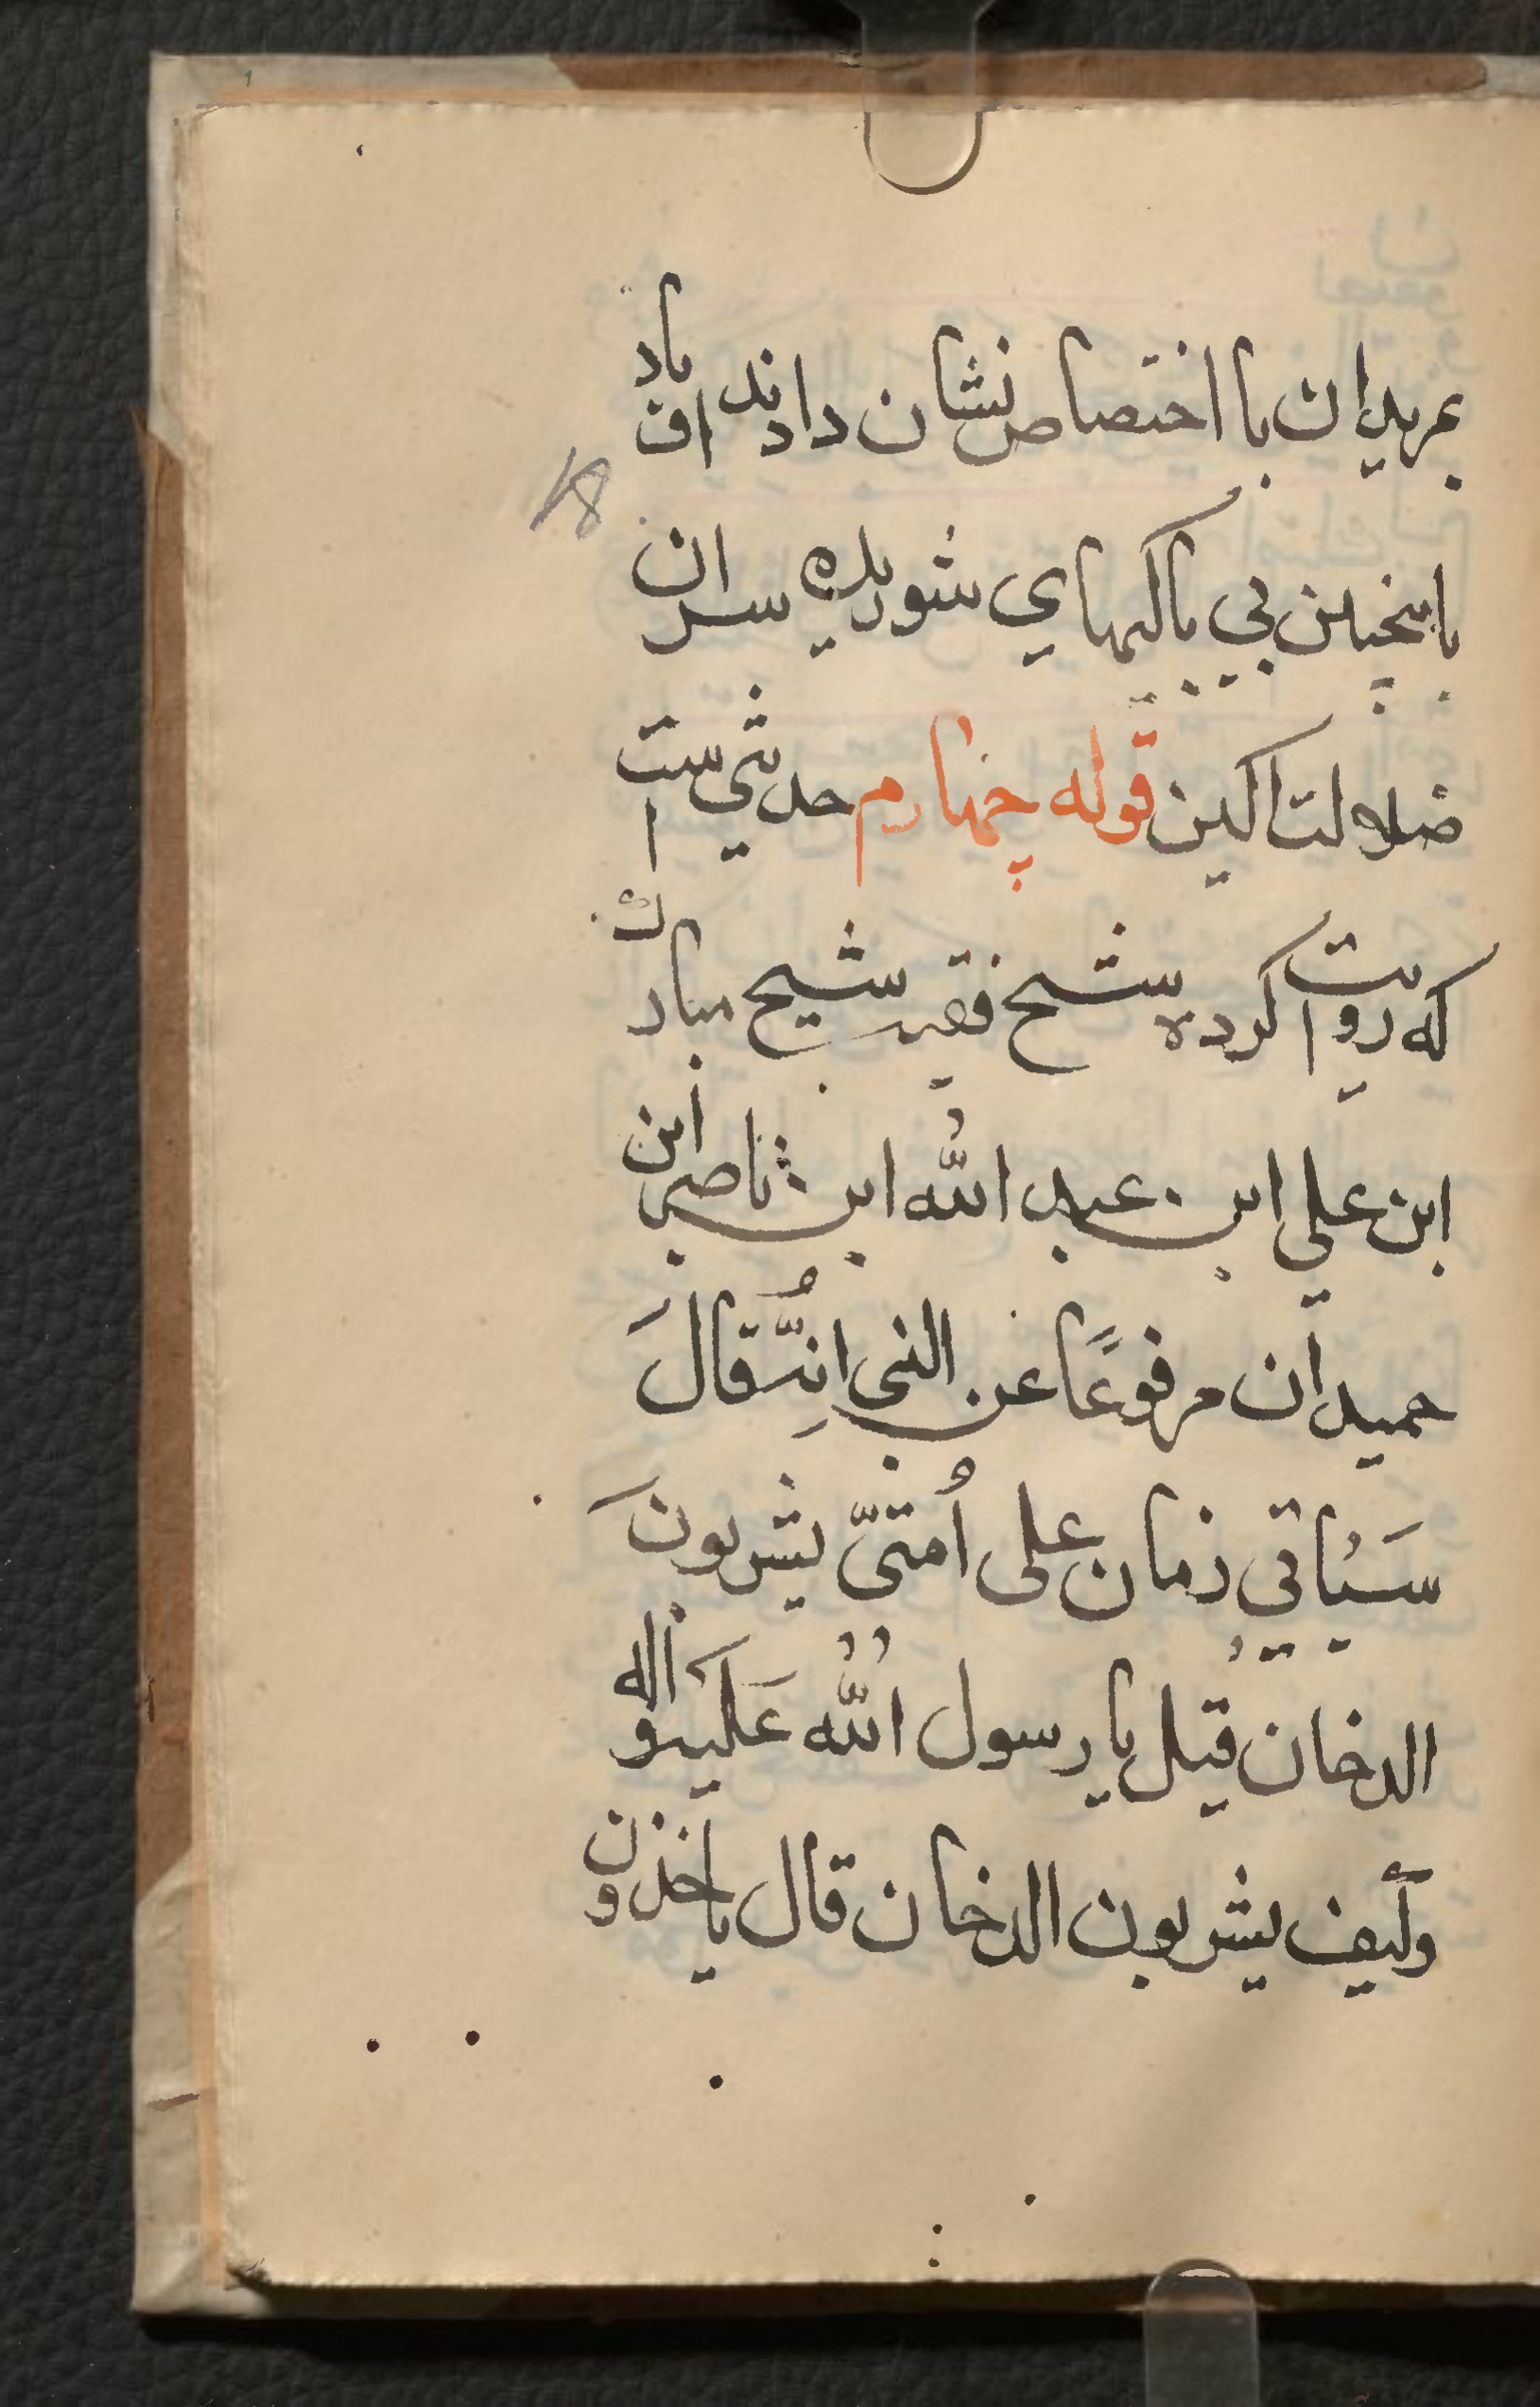 بمریدان با اختصاص نشان دادند افباد
باینچنین بی باکیهای شوریده سران
ضلالت اکین قوله چهارم حدیثی ست
که روایت کرده شیخ فقیر شیخ مبارک
ابن علی ابن عبد الله ابن ناصر ابن
حمیدان مرفوعًا عن النبی انّه قالَ
سَیْاتی زمان علی اُمتیّ یشربونَ
الدخان قیل یا رسول اللّٰه عَلَیکَ واله
وکیف یشربون الدخان قال یاخذون